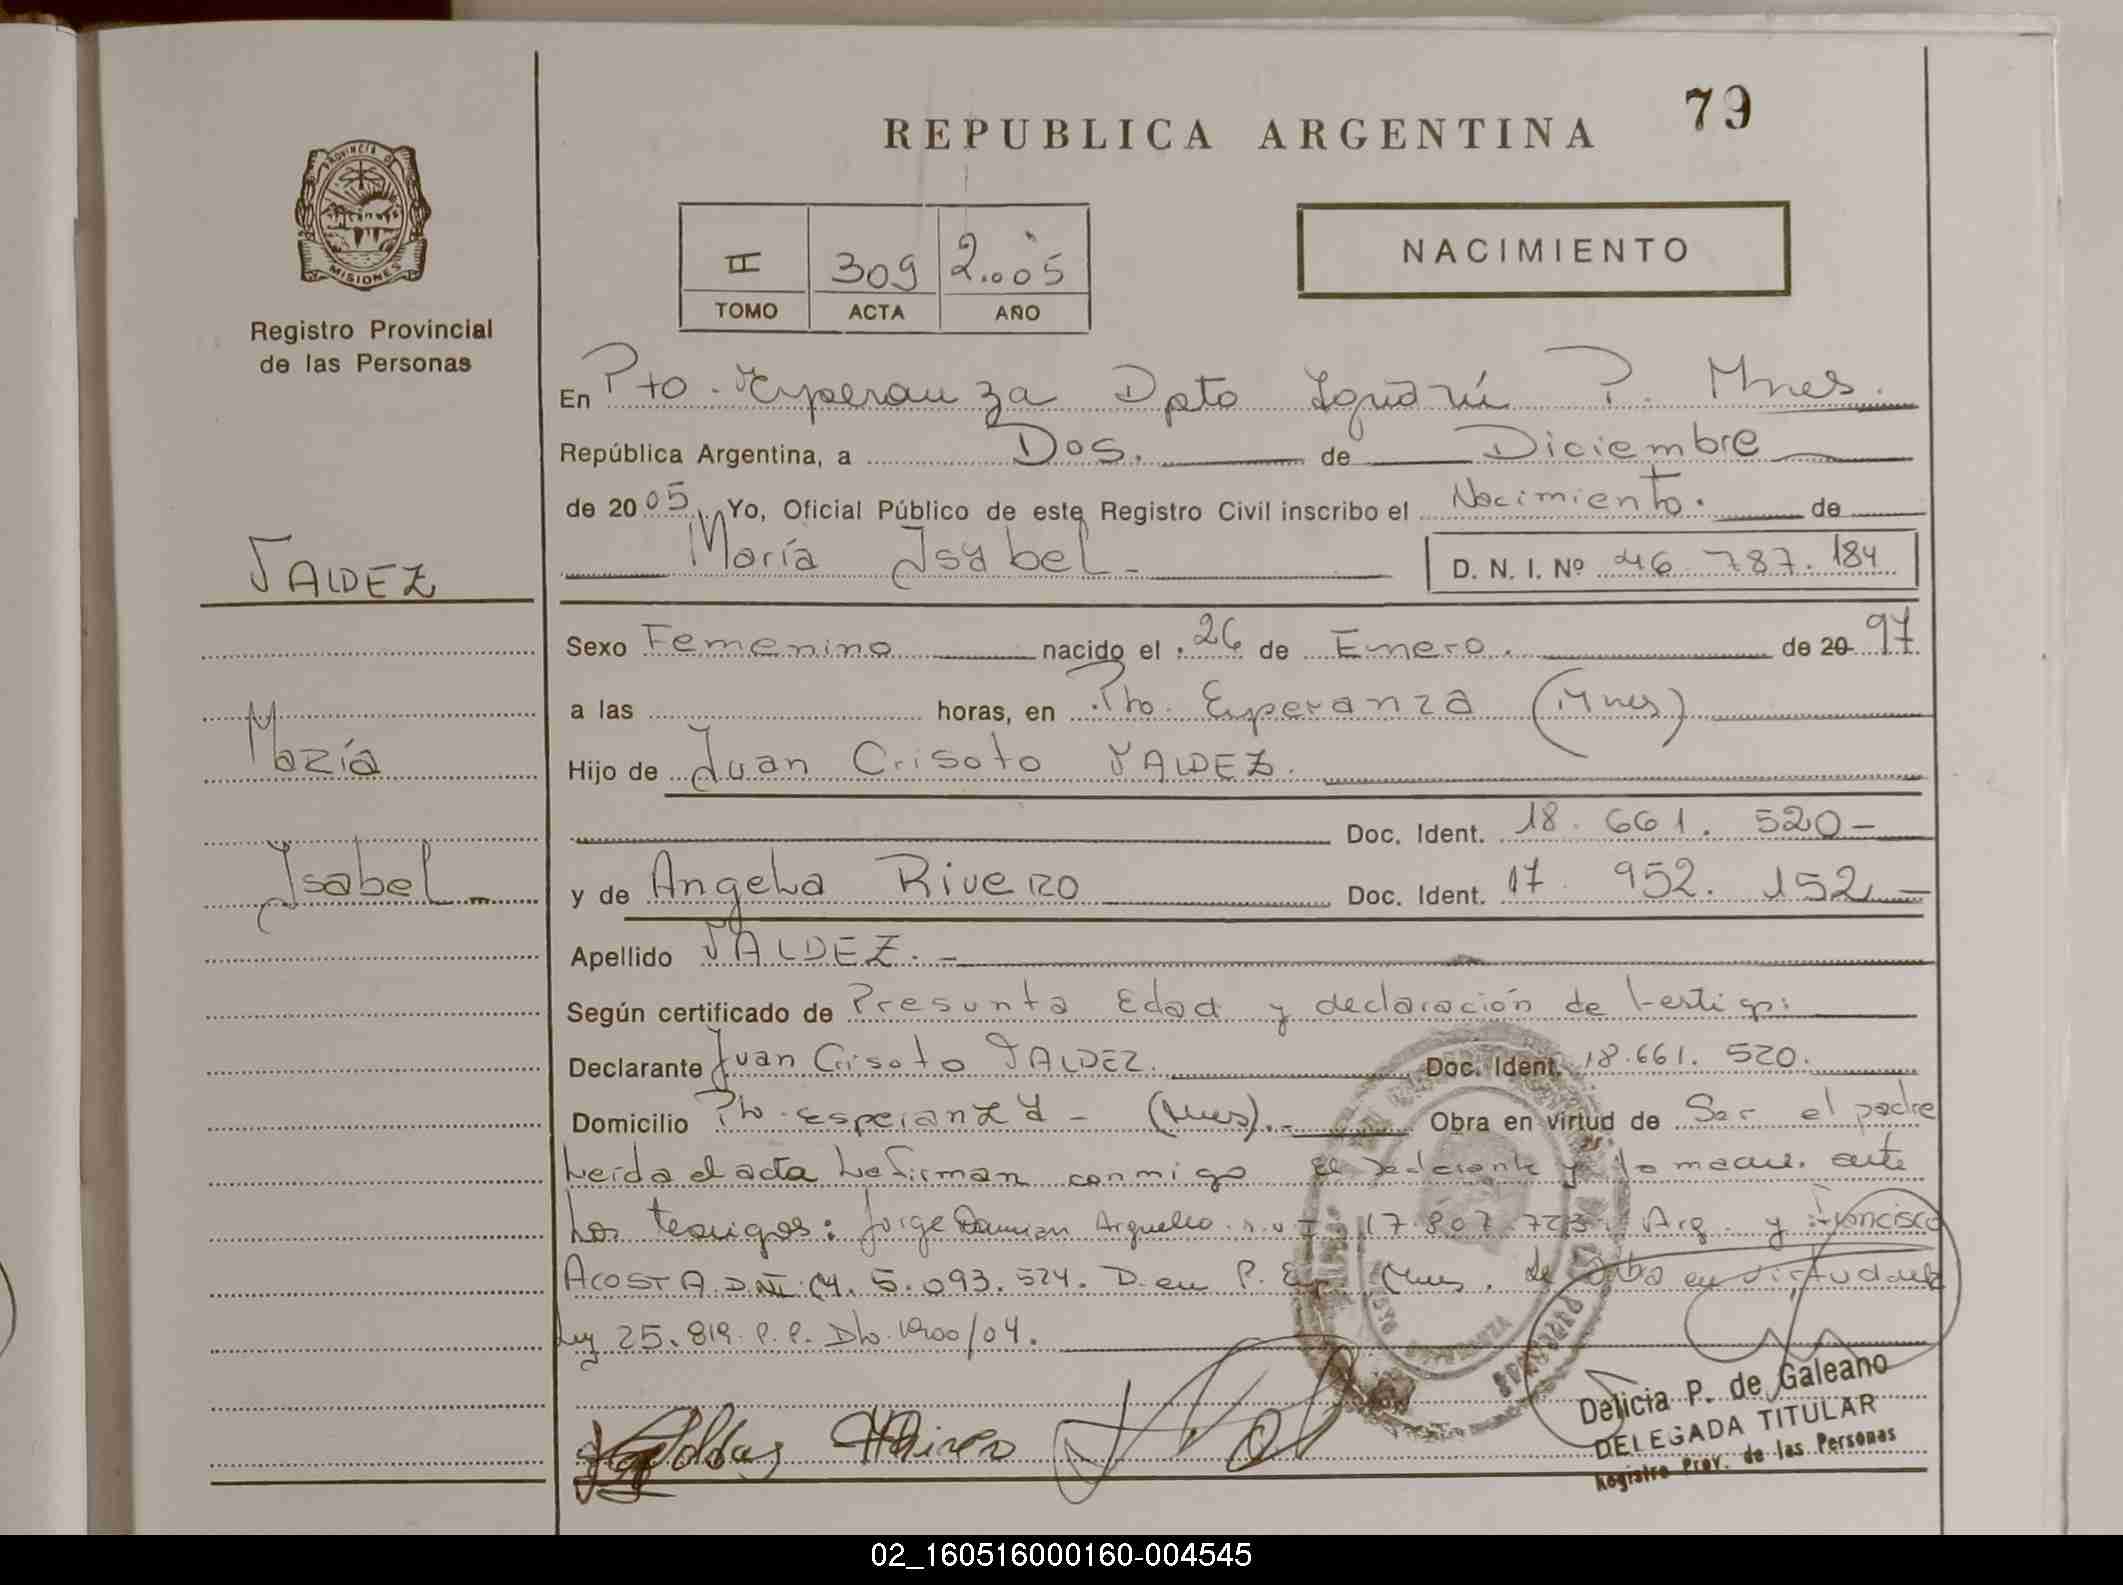 79
REPUBLICA ARGENTINA
PROVINCIA DE
MISIONES
Registro Provincial
de las Personas
II 309 2..05
TOMO ACTA AÑO
NACIMIENTO
En Pto. Esperanza Dpto Iguazú P. Mnes.
República Argentina, a Dos. de Diciembre
de 2005 Yo, Oficial Público de este Registro Civil inscribo el Nacimiento. de
María Isabel - D. N. I. Nº 46.787.184
VALDEZ
María
Isabel -
Sexo Femenino nacido el 26 de Enero. de 20 97
a las horas, en Pto. Esperanza (Mnes)
Hijo de Juan Crisoto VALDEZ.
Doc. Ident. 18.661.520-
y de Angela Rivero Doc. Ident. 17.952.152-
Apellido VALDEZ.-
Según certificado de Presunta Edad y declaración de testigos
Declarante Juan Crisoto VALDEZ. Doc. Ident. 18.661.520.
Domicilio Pto. Esperanza - (Mnes).- Obra en virtud de Ser el padre
Leída el acta la firman conmigo el declarante y la madre. ante
los testigos: Jorge Damian Arguello 17.807.723. Arg. y Francisco
ACOSTA DNI 5.093.524. D. en P. Esp. Mnes. en virtud de la
Ley 25.819. P. P. Dto. 1900/04.
Delicia P. de Galeano
DELEGADA TITULAR
Registro Prov. de las Personas
02_160516000160-004545